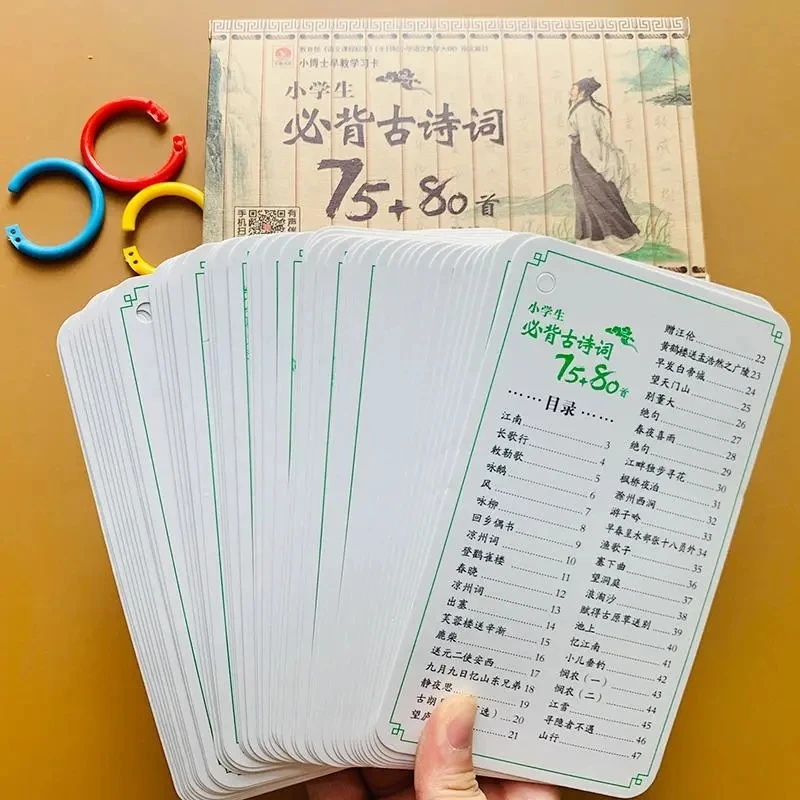 教育部《语文课程标准》《全日制小学语文教学大纲》指定篇目
小博士早教学习卡
小学生
必背古诗词
75+80首
手机扫
有声伴
小学生
必背古诗词
75+80首
……目录……
江南……3
长歌行……4
敕勒歌……5
咏鹅……6
风……7
咏柳……8
回乡偶书……9
凉州词……10
登鹳雀楼……11
春晓……12
凉州词……13
出塞……14
芙蓉楼送辛渐……15
鹿柴……16
送元二使安西……17
九月九日忆山东兄弟 18
静夜思……19
古朗 选）……20
望庐 21
赠汪伦……22
黄鹤楼送孟浩然之广陵23
早发白帝城……24
望天门山……25
别董大……26
绝句……27
春夜喜雨……28
绝句……29
江畔独步寻花……30
枫桥夜泊……31
滁州西涧……32
游子吟……33
早春呈水部张十八员外34
渔歌子……35
塞下曲……36
望洞庭……37
浪淘沙……38
赋得古原草送别……39
池上……40
忆江南……41
小儿垂钓……42
悯农（一）……43
悯农（二）……44
江雪……45
寻隐者不遇……46
山行……47